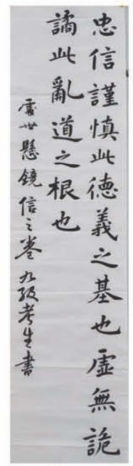 忠信謹慎此德義之基也虛無詭
譎此亂道之根也
雪世懸鏡信之卷九级考生書